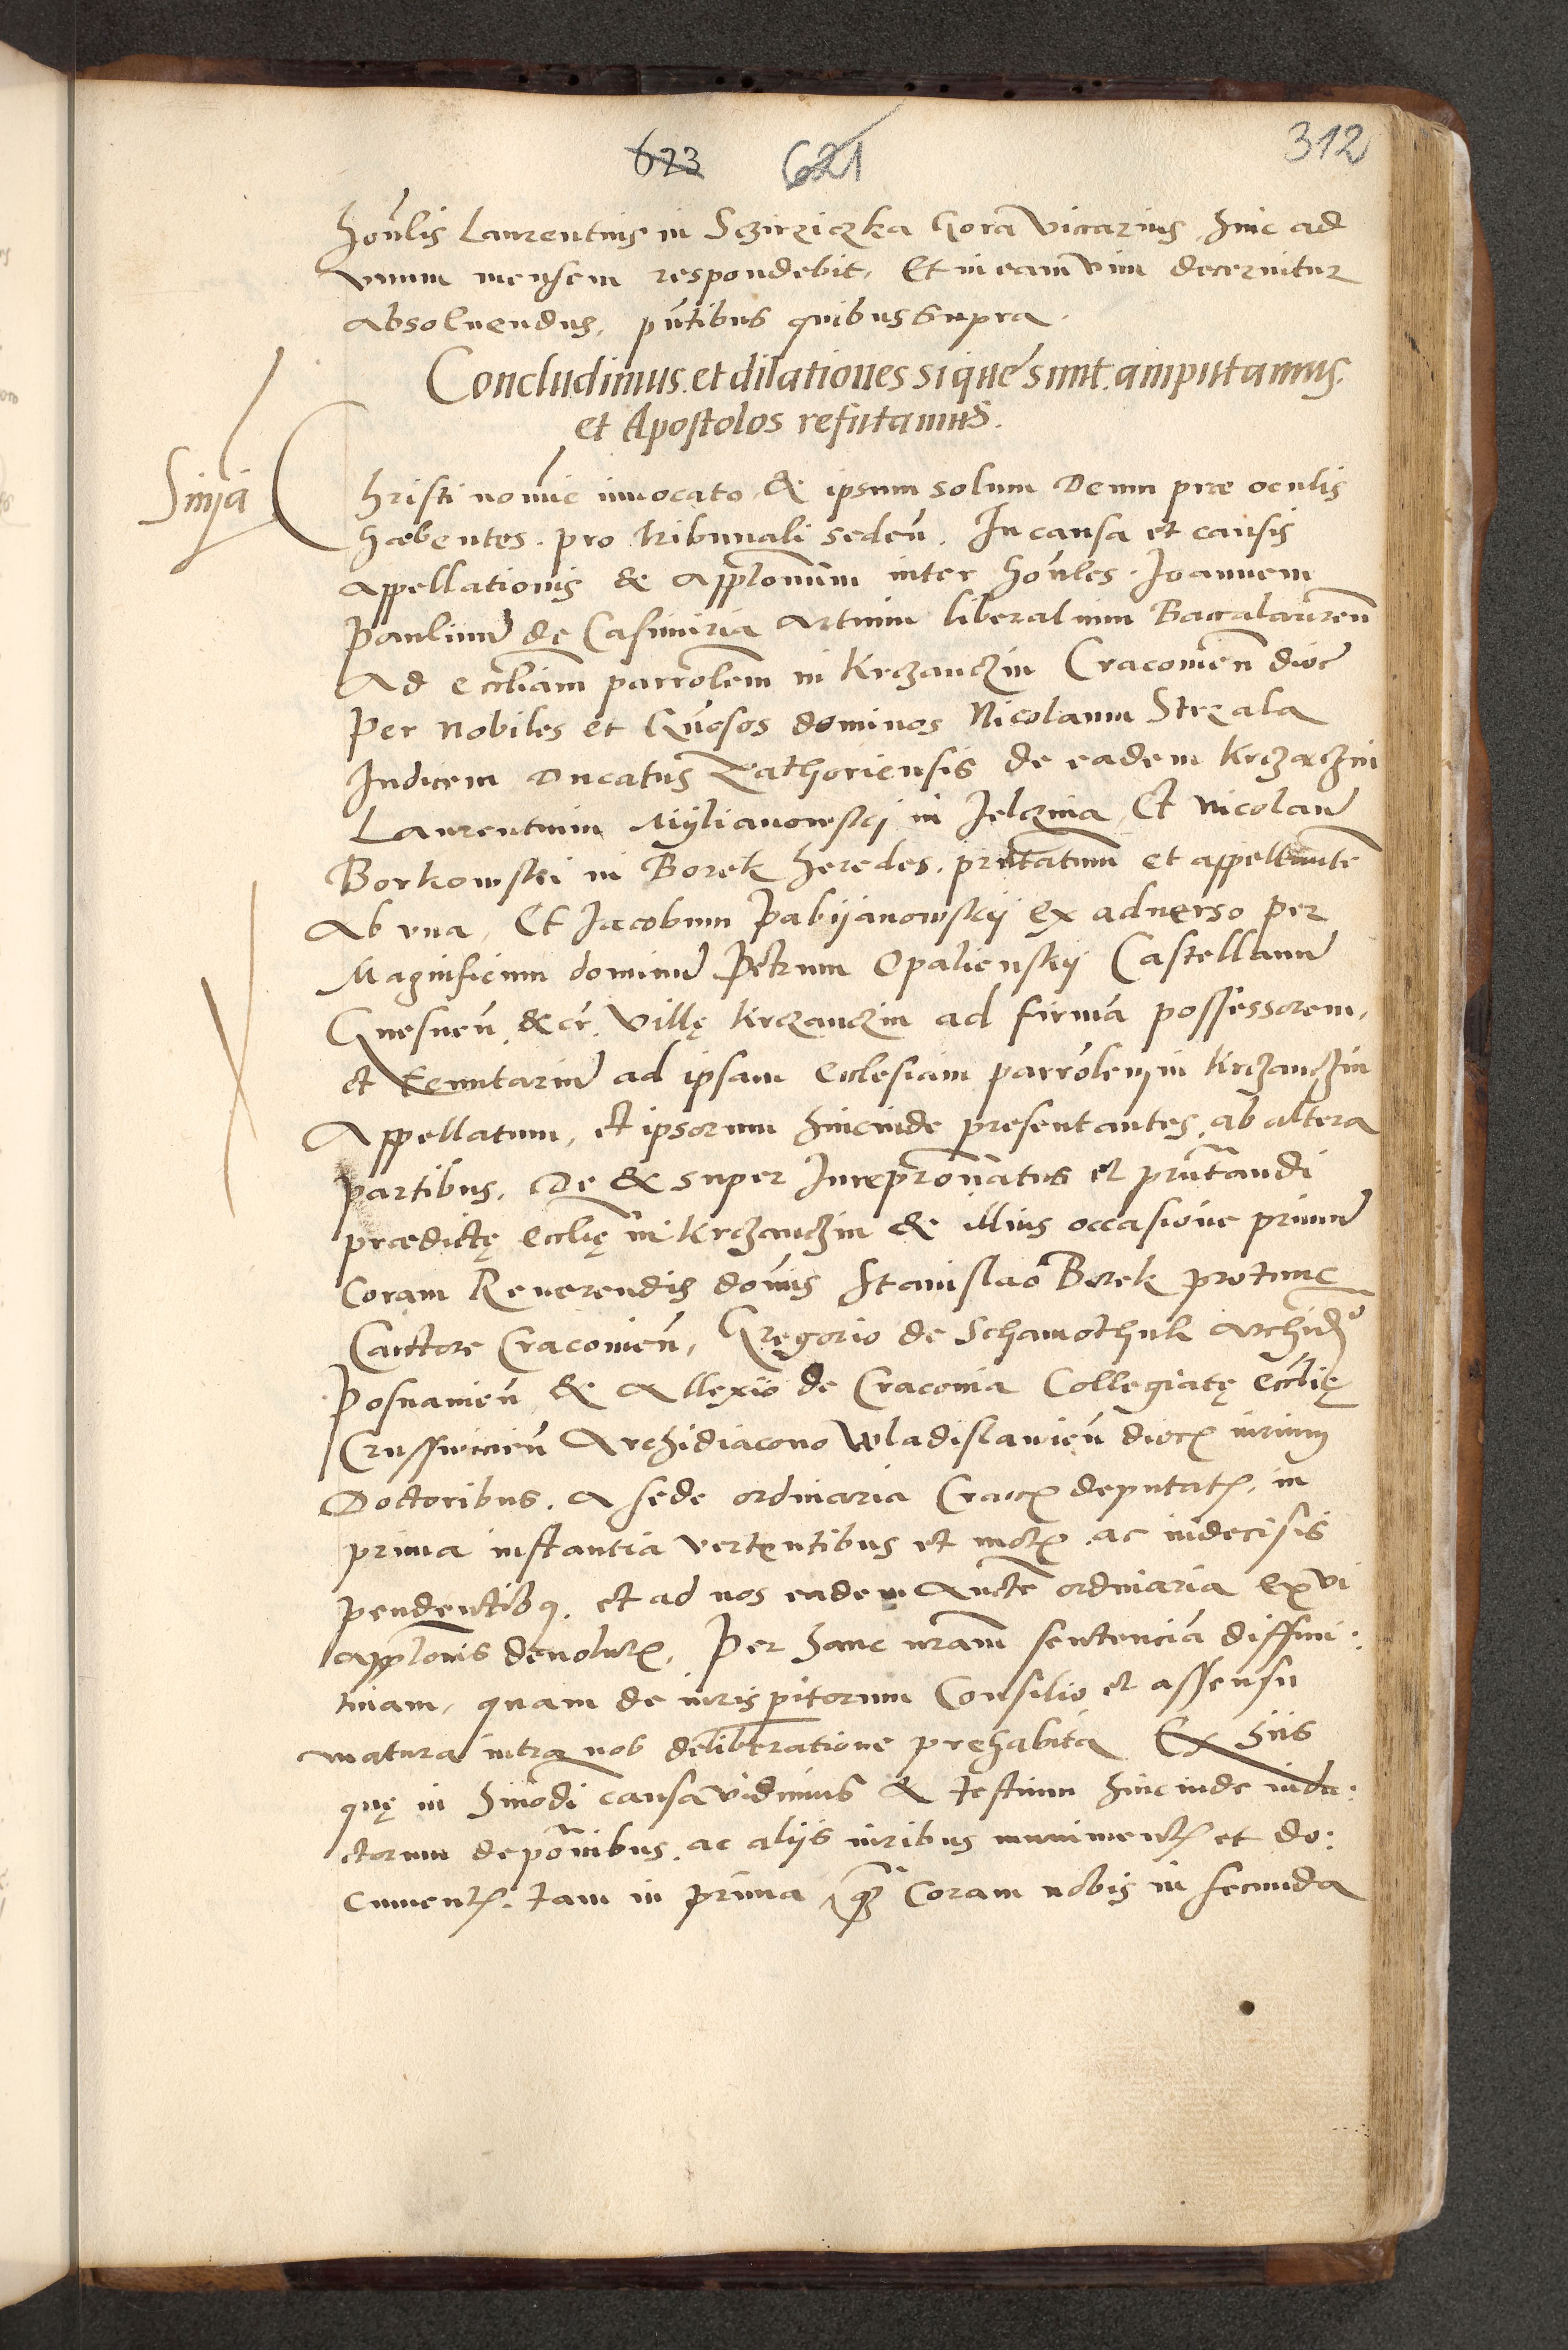 623 621 312
Hon̄lis Laurentius in Sczirziczka Gora Viccarius, hinc ad
vnum mensem respondebit, Et in eam vim decernitur
absoluendus, pñtibus quibus supra.
Concludimus. et dilationes si que sunt. amputamus.
et Apostolos refutamus.
Sn̄ia
Christi nomīe inuocato & ipsum solum Deum præ oculis
habentes. pro tribunali sedeñ. In causa et causis
appellationis & applōnum inter hon̄les. Joannem
Paulinū de Casimiria artium liberalium Baccalaureū
Ad eccliam parrōlem in Krczanczin Cracouieñ dioc̄
Per Nobiles et Gn̄osos dominos Nicolaum Strzala
Judicem Ducatus Zathoriensis de eadem Krczaczin
Laurentium Miylianowskij in Jelczina, Et Nicolaū
Borkowski in Borek heredes. pn̄tatum et appellantē
Ab vna, Et Jacobum Pabijanowskij ex aduerso per
Magnificum dominū Petrum Opalienskij Castellanū
Gnesneñ. &c̄r. villę Krczanczin ad firmā possessorem,
et tenutariū ad ipsam Ecclesiam parrōlem in Krczanczin
Appellatum, et ipsorum hincinde presentantes, ab altera
partibus. De & super Jurepr̄onatus et pn̄tandi
prædictę eccl̄ię in Krczanczin & illius occasione primū
Coram Reuerendis dōnis Stanislao Borek protunc
Cantore Cracouieñ, Gregorio de Schamothuli Archid̄o
Posnanieñ & Allexio de Cracouia Collegiatę eccl̄ię
Crusswicieñ Archidiacono Wladislauieñ dioc̄ iurium
Doctoribus. A sede ordinaria Crac̄ deputat̄, in
prima instantia vertentibus et mot̄ ac indecisis
pendentibꝫ. et ad nos eadem Aucte ordinaria ex vi
applōnis deuolut̄, Per hanc nr̄am sentenciā diffini:
tiuam, quam de iurisp̄itorum Consilio et assensu
matura intra nos deliberatione prehabita Ex hiis
quę in hmōdi causa vidimus & testium hincinde indu:
ctorum depōnibus. ac aliis iuribus muniment̄ et do:
cument̄. tam in prima qꝫ̄ Coram nobis in secunda